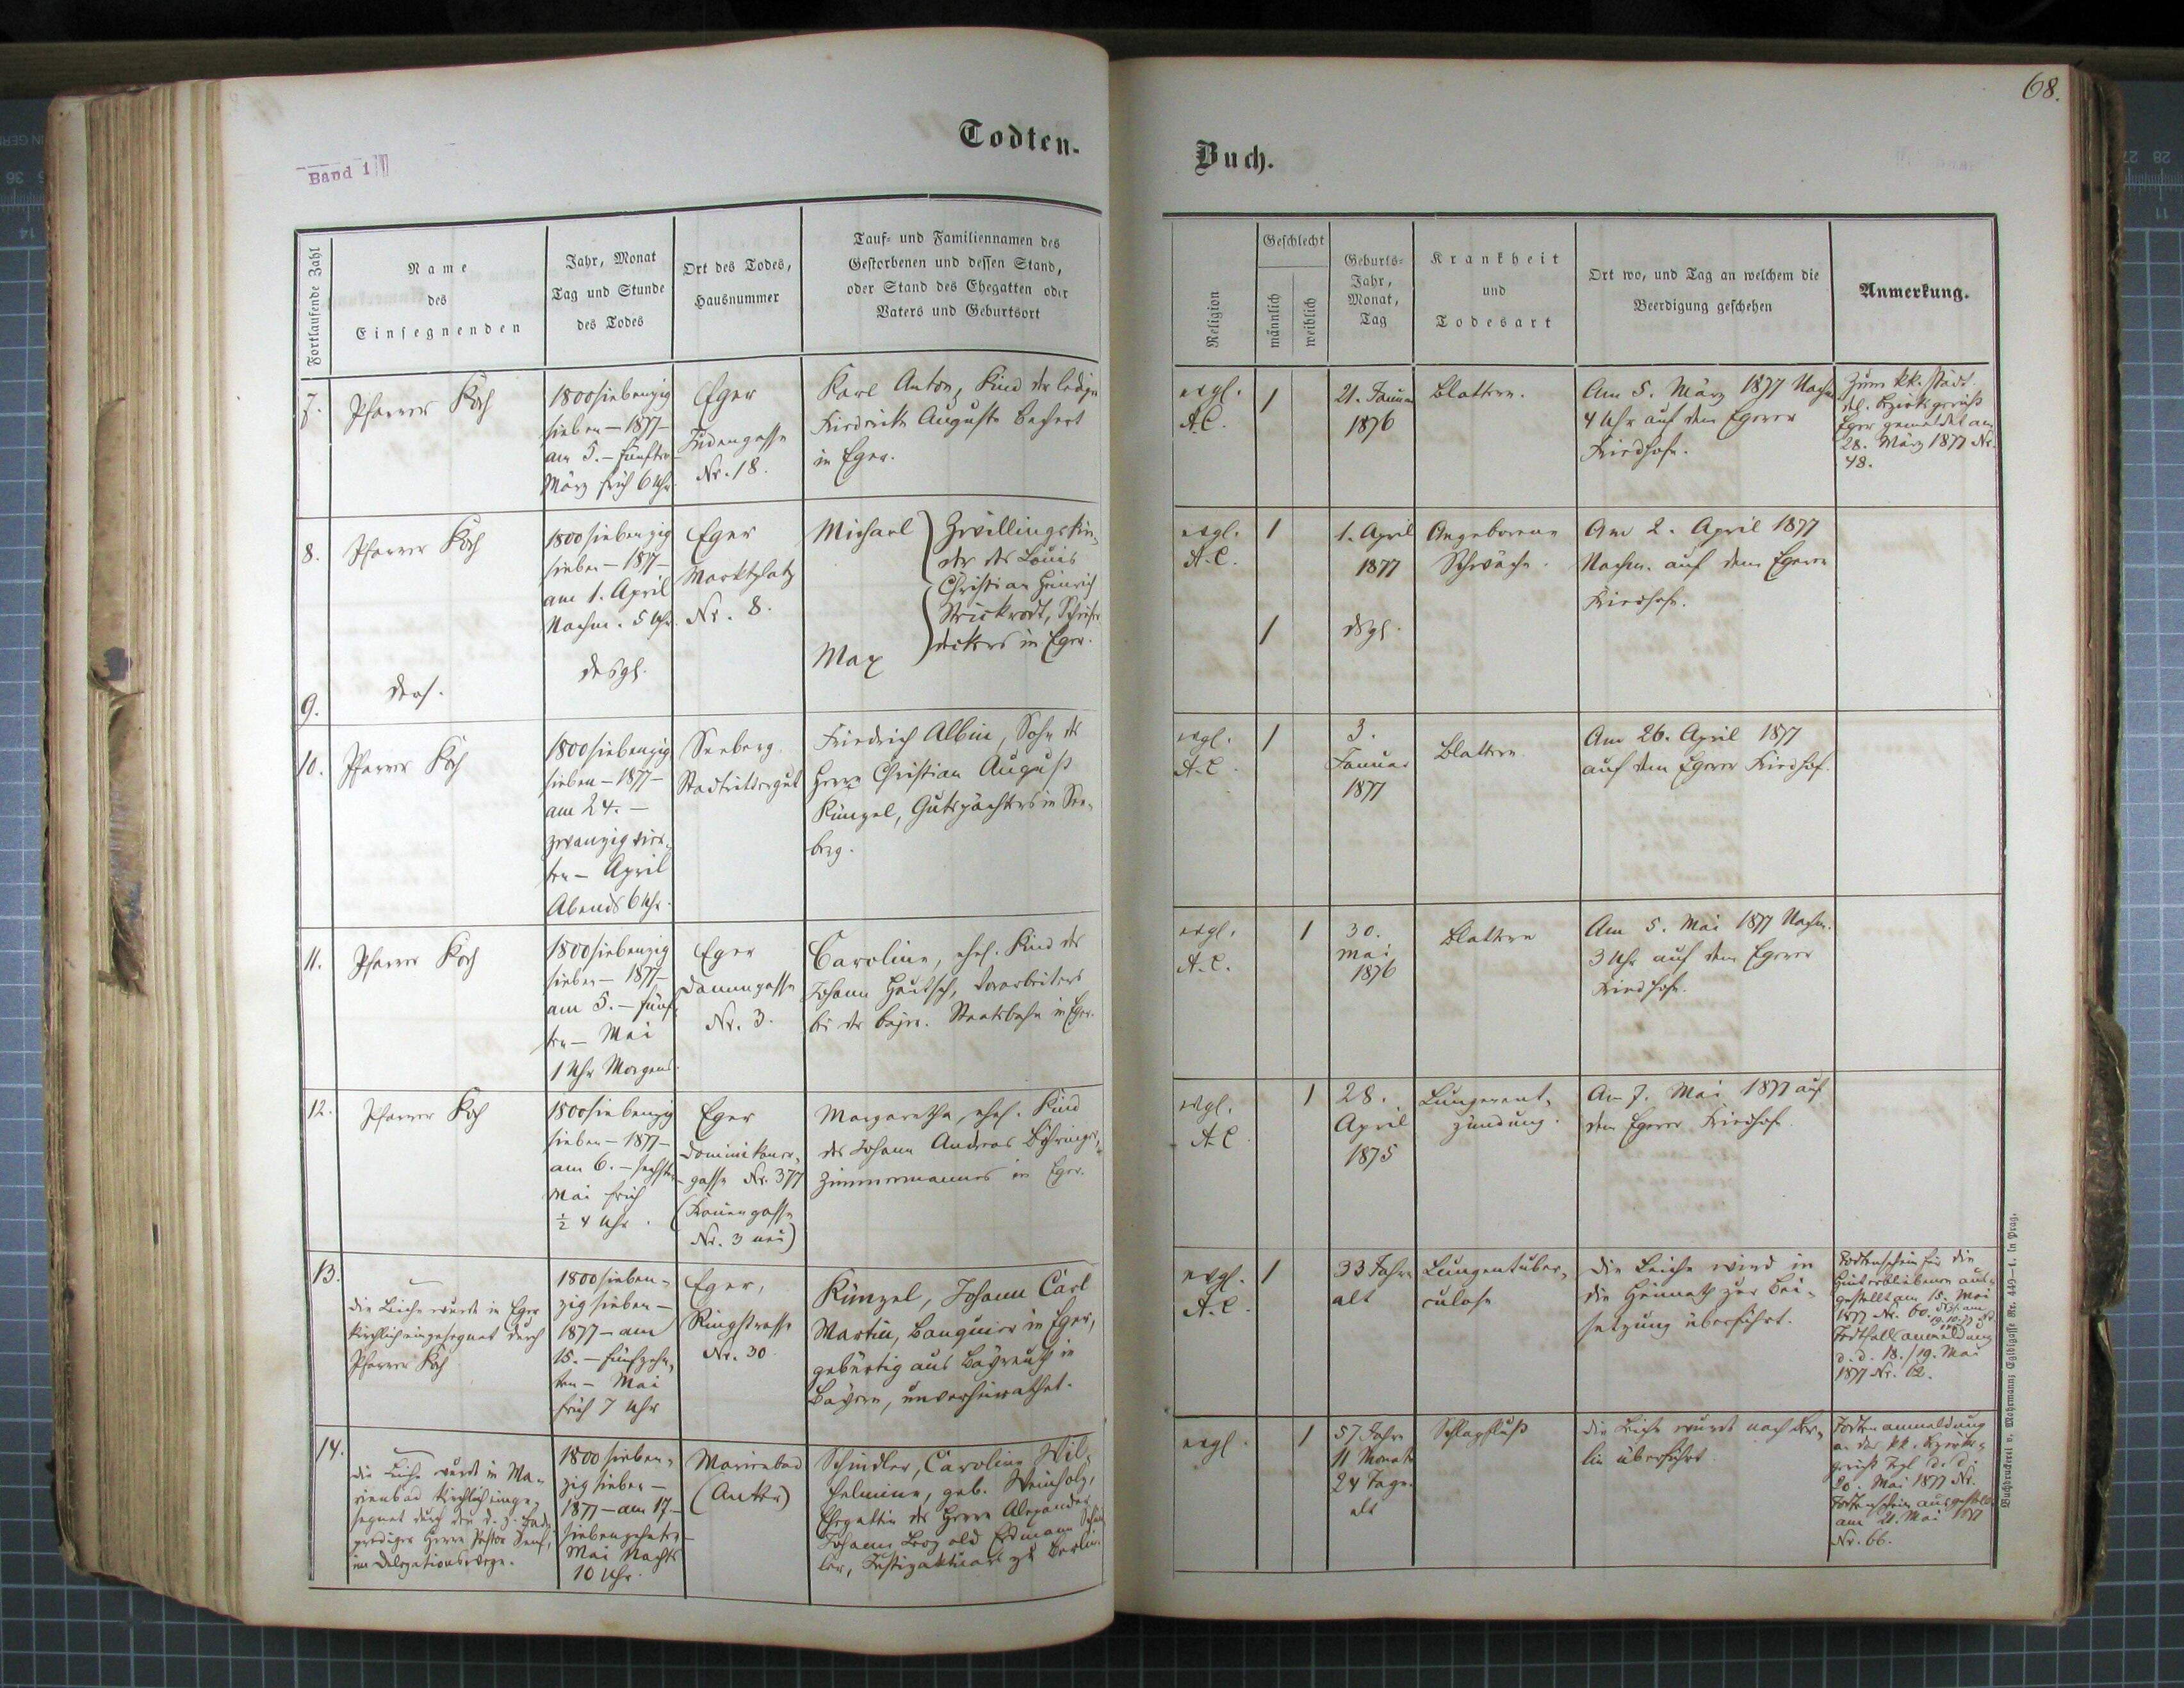 68.
Todten-
Buch.
Band 1
Fortlaufende Zahl
Name
des
Einsegnenden
Jahr, Monat
Tag und Stunde
des Todes
Ort des Todes,
Hausnummer
Tauf- und Familiennamen des
Gestorbenen und dessen Stand,
oder Stand des Ehegatten oder
Vaters und Geburtsort
Religion
Geschlecht
männlich
weiblich
Geburts-
Jahr,
Monat,
Tag
Krankheit
und
Todesart
Ort wo, und Tag an welchem die
Beerdigung geschehen
Anmerkung.
7.
Pfarrer Koch
1800siebenzig
sieben – 1877 –
am 5. – fünften
März früh 6 Uhr
Eger
Judengasse
Nr. 18.
Karl Anton, Kind der ledigen
Friederike Auguste
in Eger.
evgl.
A.C.
1
21. Januar
1876
Blattern.
Am 5. März 1877 Nachm.
4 Uhr auf dem Egerer
Friedhofe.
Zum kk. städt.
del. Bezirksgericht
Eger gemeldet am
28. März 1877 Nr.
48.
8.
Pfarrer Koch
1800siebenzig
sieben – 1877 –
am 1. April
Nachm. 5 Uhr.
Eger
Marktplatz
Nr. 8.
Michael
Zwillingskin-
der des Louis
Christian Heinrich
Strickrodt,
in Eger.
evgl.
A.C.
1
1. April
1877
Angeborene
Schwäche.
Am 2. April 1877
Nachm. auf dem Egerer
Friedhofe.
9.
ders.
desgl.
Max
1
dsgl.
10.
Pfarrer Koch
1800siebenzig
sieben – 1877 –
am 24. –
zwanzigvier-
ten – April
Abends 6 Uhr.
Seeberg
Stadtrittergut
Friedrich Albin, Sohn des
Herrn Christian August
Künzel, Gutspächters in See-
berg.
evgl.
A.C.
1
3.
Januar
1877
Blattern
Am 26. April 1877
auf dem Egerer Friedhof.
11.
Pfarrer Koch
1800siebenzig
sieben – 1877 –
am 5. – fünf-
ten – Mai
1 Uhr Morgens.
Eger
Nr. 3.
Caroline, ehel. Kind des
Johann Vorarbeiters
bei der bayr. Staatsbahn in Eger.
evgl.
A.C.
1
30.
Mai
1876
Blattern
Am 5. Mai 1877 Nachm.
3 Uhr auf dem Egerer
Friedhofe.
12.
Pfarrer Koch
1800siebenzig
sieben – 1877 –
am 6. – sechsten
Mai früh
½ 4 Uhr.
Eger
Dominikaner-
gasse Nr. 377
(Frauengasse
Nr. 3 neu)
Margaretha, ehel. Kind
des Johann Andreas Böhringer,
Zimmermannes in Eger.
evgl.
A.C
1
28.
April
1875
Lungenent-
zündung.
Am 7. Mai 1877 auf
dem Egerer Friedhofe.
13.
die Leiche wurde in Eger
kirchlich eingesegnet durch
Pfarrer Koch
1800sieben-
zigsieben –
1877 – am
15. – fünfzehn-
ten – Mai
früh 7 Uhr
Eger,
Ringstrasse
Nr. 30.
Künzel, Johann Carl
Martin, Banquier in Eger,
gebürtig aus Bayreuth in
Bayern, unverheirathet.
evgl.
A.C.
1
33 Jahre
alt
Lungentuber-
culose
die Leiche wird in
die Heimath zur Bei-
setzung überführt.
Todtenschein für die
Hinterbliebenen aus-
gestellt am 15. Mai
1877 Nr. 60.
Todfallsanmeldung
d.d. 18./19. Mai
1877 Nr. 62.
14.
die Leiche wurde in Ma-
rienbad kirchlich einge-
segnet durch den d. z. Bade-
prediger Herrn Pastor Senf,
im Delegationswege.
1800sieben-
zigsieben –
1877 – am 17 –
siebenzehnten
Mai Nachts
10 Uhr.
Marienbad
Schindler, Caroline Wil-
helmine, geb. Weinholz,
Ehegattin des Herrn Alexander
Johann Leopold Erdmann Schind-
ler, Justizaktuar zu Berlin.
evgl.
1
57 Jahre
11 Monate
24 Tage
alt
Schlagfluß
die Leiche wurde nach Ber-
lin überführt
Todtenanmeldung
an das kk. Bezirks-
gericht d. d.
20. Mai 1877 Nr.
Todtenschein ausgestellt
am 21. Mai 1877
Nr. 66.